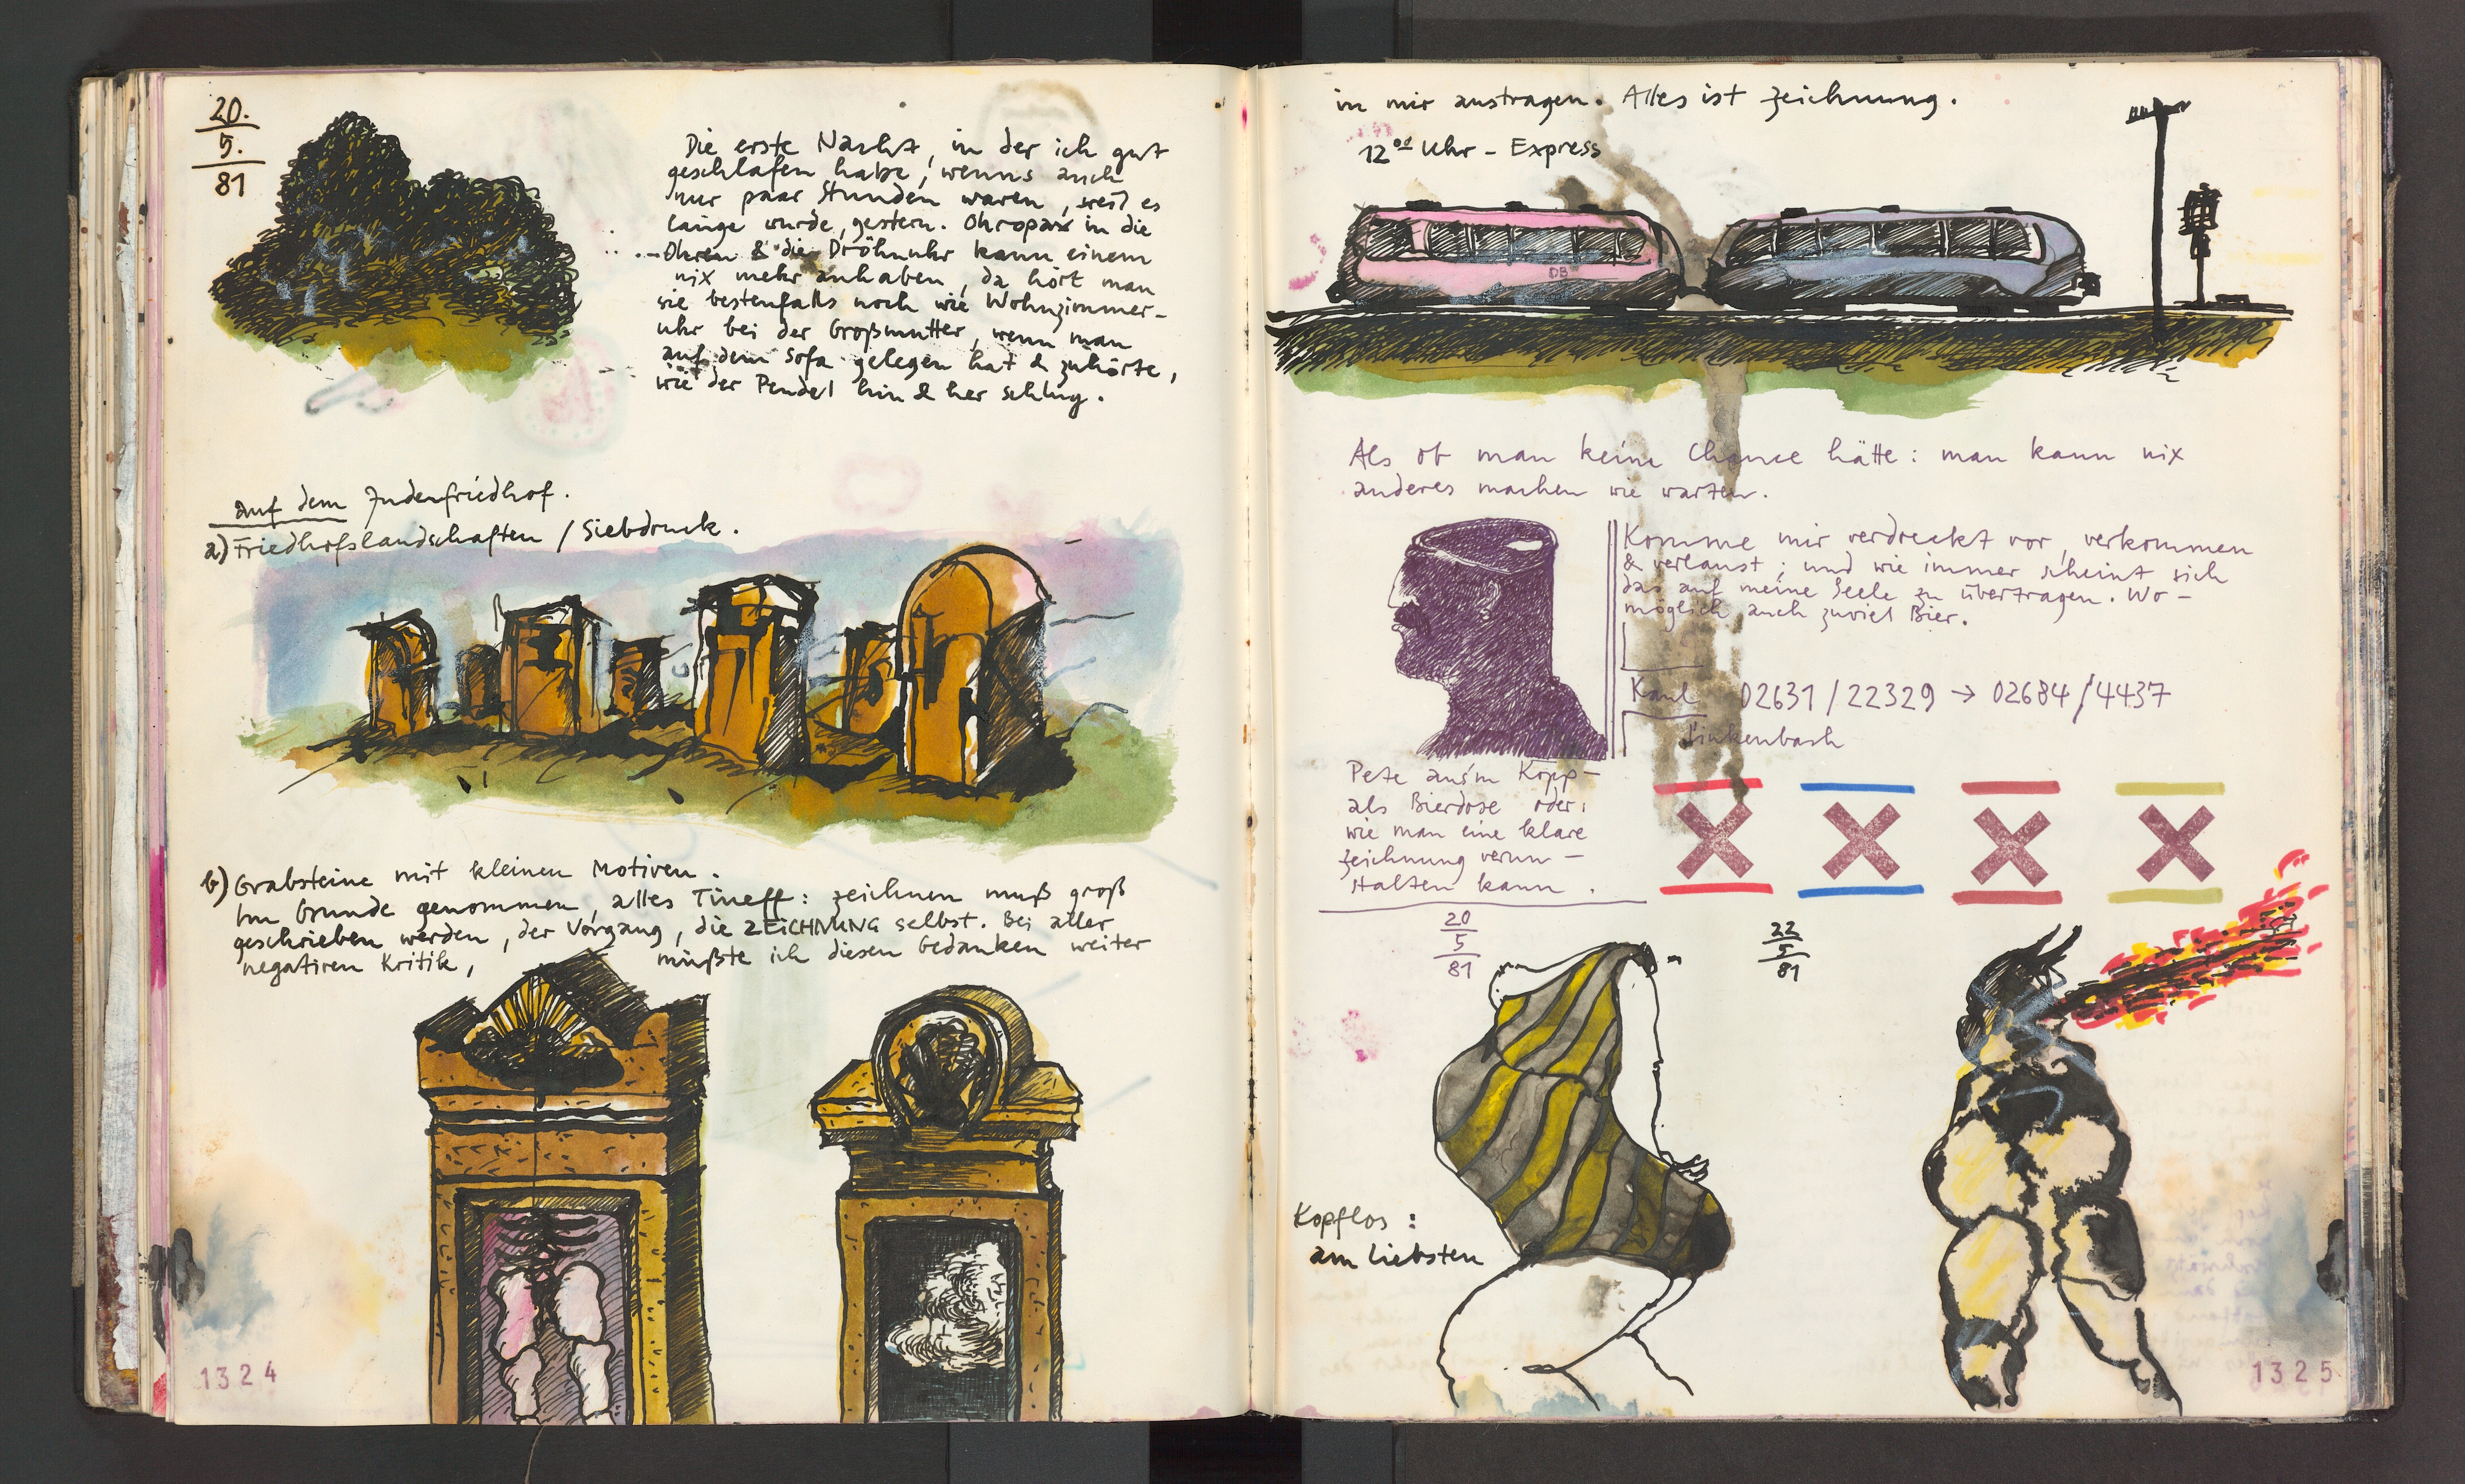 20.
5.
81
Die erste Nacht, in der ich gut
geschlafen habe, wenns auch
nur paar Stunden waren, weil es
lange wurde, gestern. Ohropax in die
Ohren & die Dröhnuhr kann einem
nix mehr anhaben, da hört man
sie bestenfalls noch wie Wohnzimmer-
uhr bei der Großmutter, wenn man
auf dem Sofa gelegen hat & zuhörte,
wie der Pendel hin & her schlug.
auf dem Judenfriedhof.
a) Friedhofslandschaften / Siebdruck.
b) Grabsteine mit kleinen Motiven.
Im Grunde genommen, alles Tineff: zeichnen muß groß
geschrieben werden, der Vorgang, die ZEICHNUNG selbst. Bei aller
negativen Kritik, müßte ich diesen Gedanken weiter
1324
in mir austragen. Alles ist Zeichnung.
12⁰⁰ Uhr - Express
DB
Als ob man keine Chance hätte: man kann nix
anderes machen wie warten.
Komme mir verdreckt vor, verkommen
& verlaust; und wie immer scheint sich
das auf meine Seele zu übertragen. Wo-
möglich auch zuviel Bier.
02631/22329 → 02684/4437
Pete aus'm Kopp-
als Bierdose oder:
wie man eine klare
Zeichnung verun-
stalten kann.
20
5
81
22
5
81
Kopflos:
am liebsten
1325